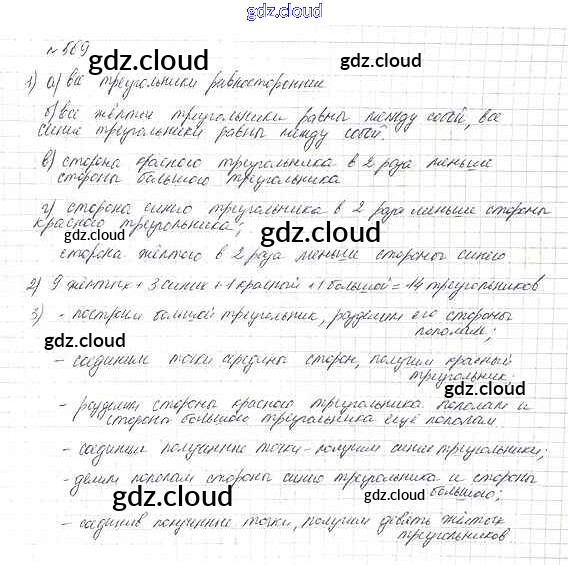 gdz.cloud
№ 569
gdz.cloud gdz.cloud
1) а) все треугольники равносторонние
б) все жёлтые триугольники равны между собой, все
синие триугольники равны между собой.
в) сторона красного триугольника в 2 раза меньше
стороны большого триугольника
г) сторона синего триугольника в 2 раза меньше стороны
красного триугольника;
gdz.cloud gdz.cloud
сторона жёлтого в 2 раза меньше стороны синего
2) 9 жёлтых + 3 синих + 1 красный + 1 большой = 14 треугольников
3) - построим большой триугольник, разделим его стороны
пополам;
gdz.cloud
- соединим точки середины сторон, получим красный
триугольник.
gdz.cloud
- разделим стороны красного триугольника пополам и
стороны большого триугольника ещё пополам.
- соединим полученные точки - получим синие триугольники;
- делим пополам стороны синего триугольника и стороны
большого;
gdz.cloud gdz.cloud
- соединив полученные точки, получим девять жёлтых
триугольников